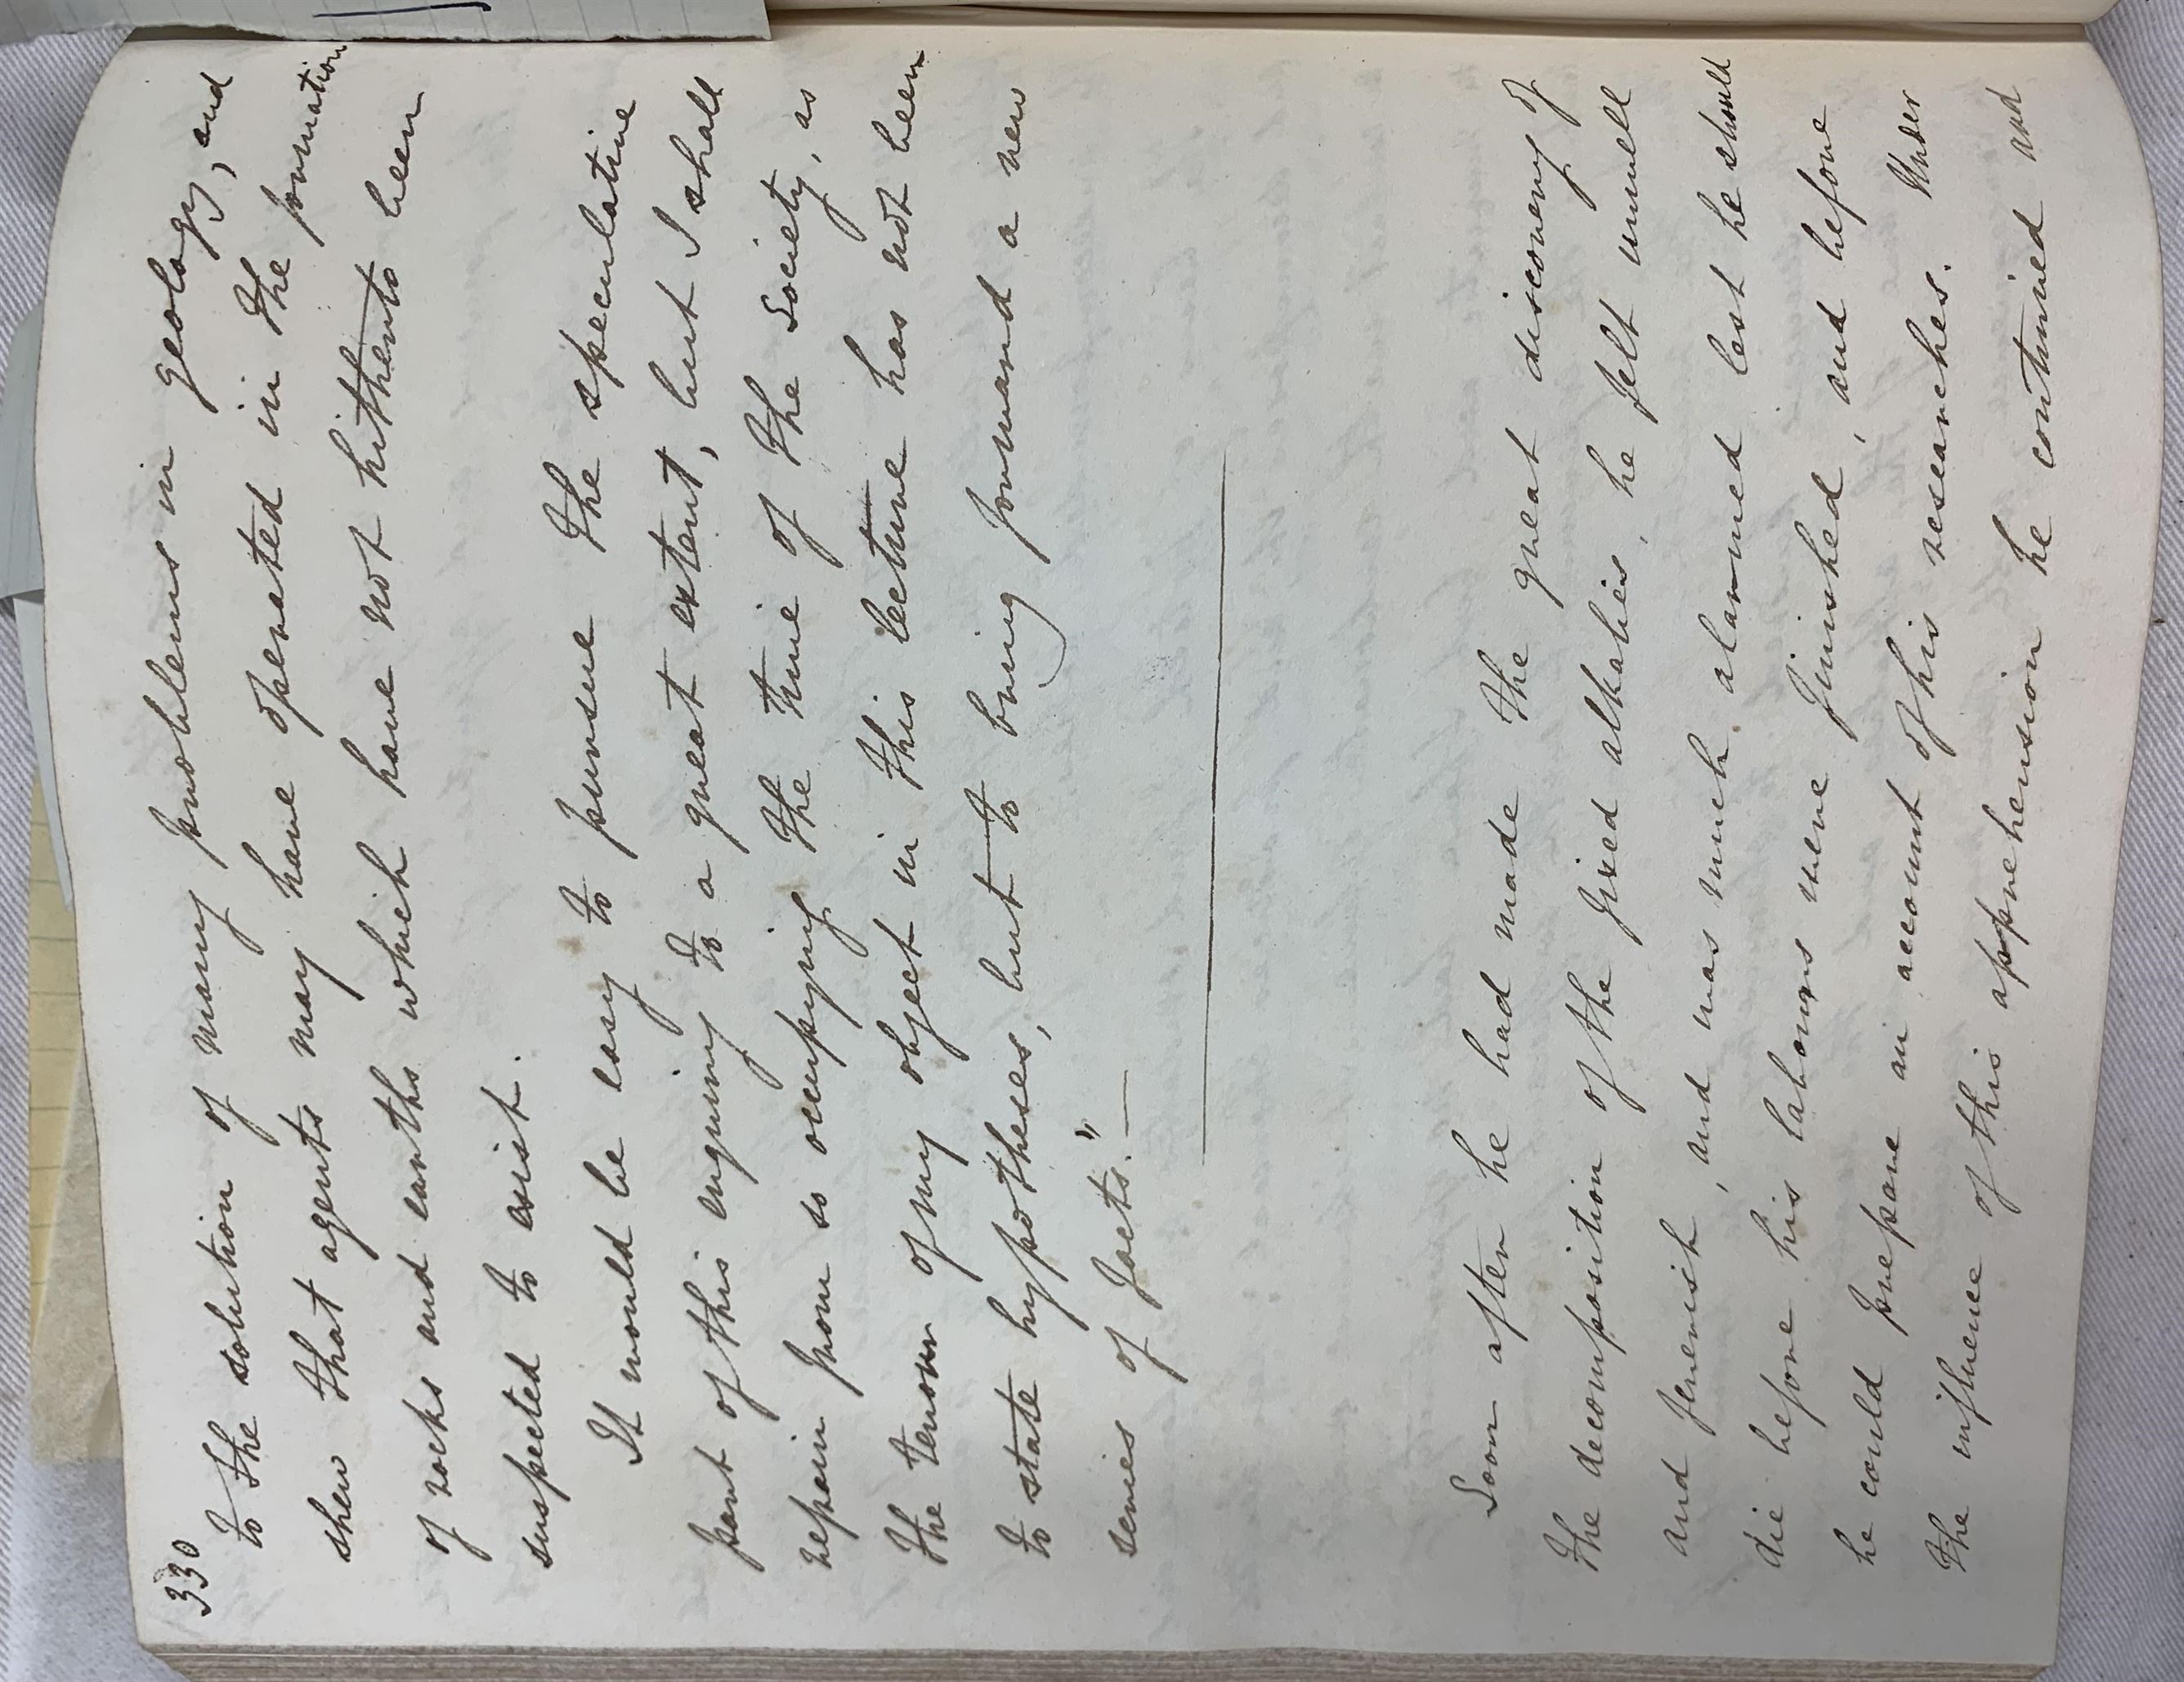 330
to the solution of many problems in geology, and
shew that agents may have operated in the formation
of rocks and earths which have not hitherto been
suspected to exist.
It would be easy to pursue the speculative
part of this enquiry to a great extent, but I shall
refrain from so occupying the time of the Society, as
the tenour of my object in this lecture has not been
to state hypotheses, but to bring forward a new
series of facts."—
Soon after he had made the great discovery of
the decomposition of the fixed alkalies, he felt unwell
and feverish, and was much alarmed lest he should
die before his labours were finished, and before
he could prepare an account of his researches. Under
the influence of this apprehension he continued and